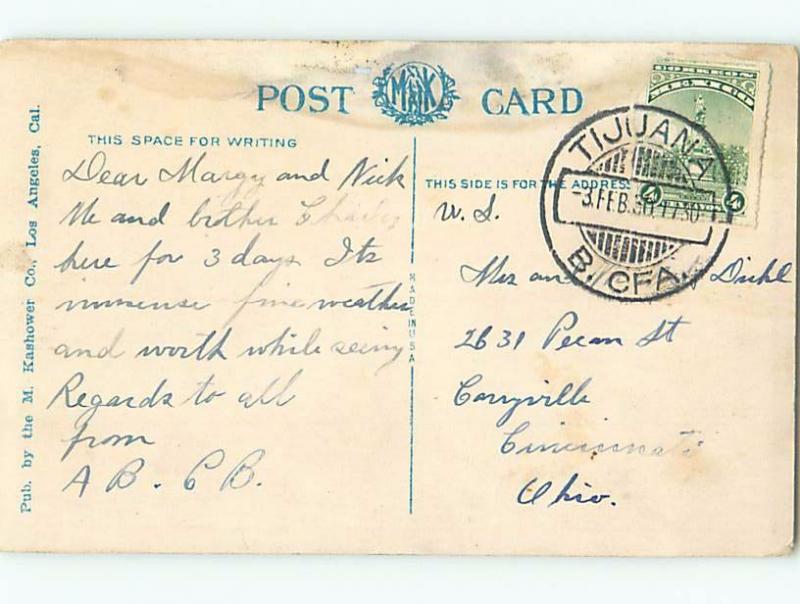 POST CARD
MK
THIS SPACE FOR WRITING
Dear Margy and Nick
We and brother Charles
here for 3 days Its
immense fine weather
and worth while seeing
Regards to all
from
A B. C B.
Pub. by the M. Kashower Co., Los Angeles, Cal.
MADE IN USA
THIS SIDE IS FOR THE ADDRESS
TIJUANA
-3.FEB.30.1730
B. CFA.
4 4
U. S.
Mrs and Diehl
2631 Pecan St
Corryville
Cincinnati
Ohio.